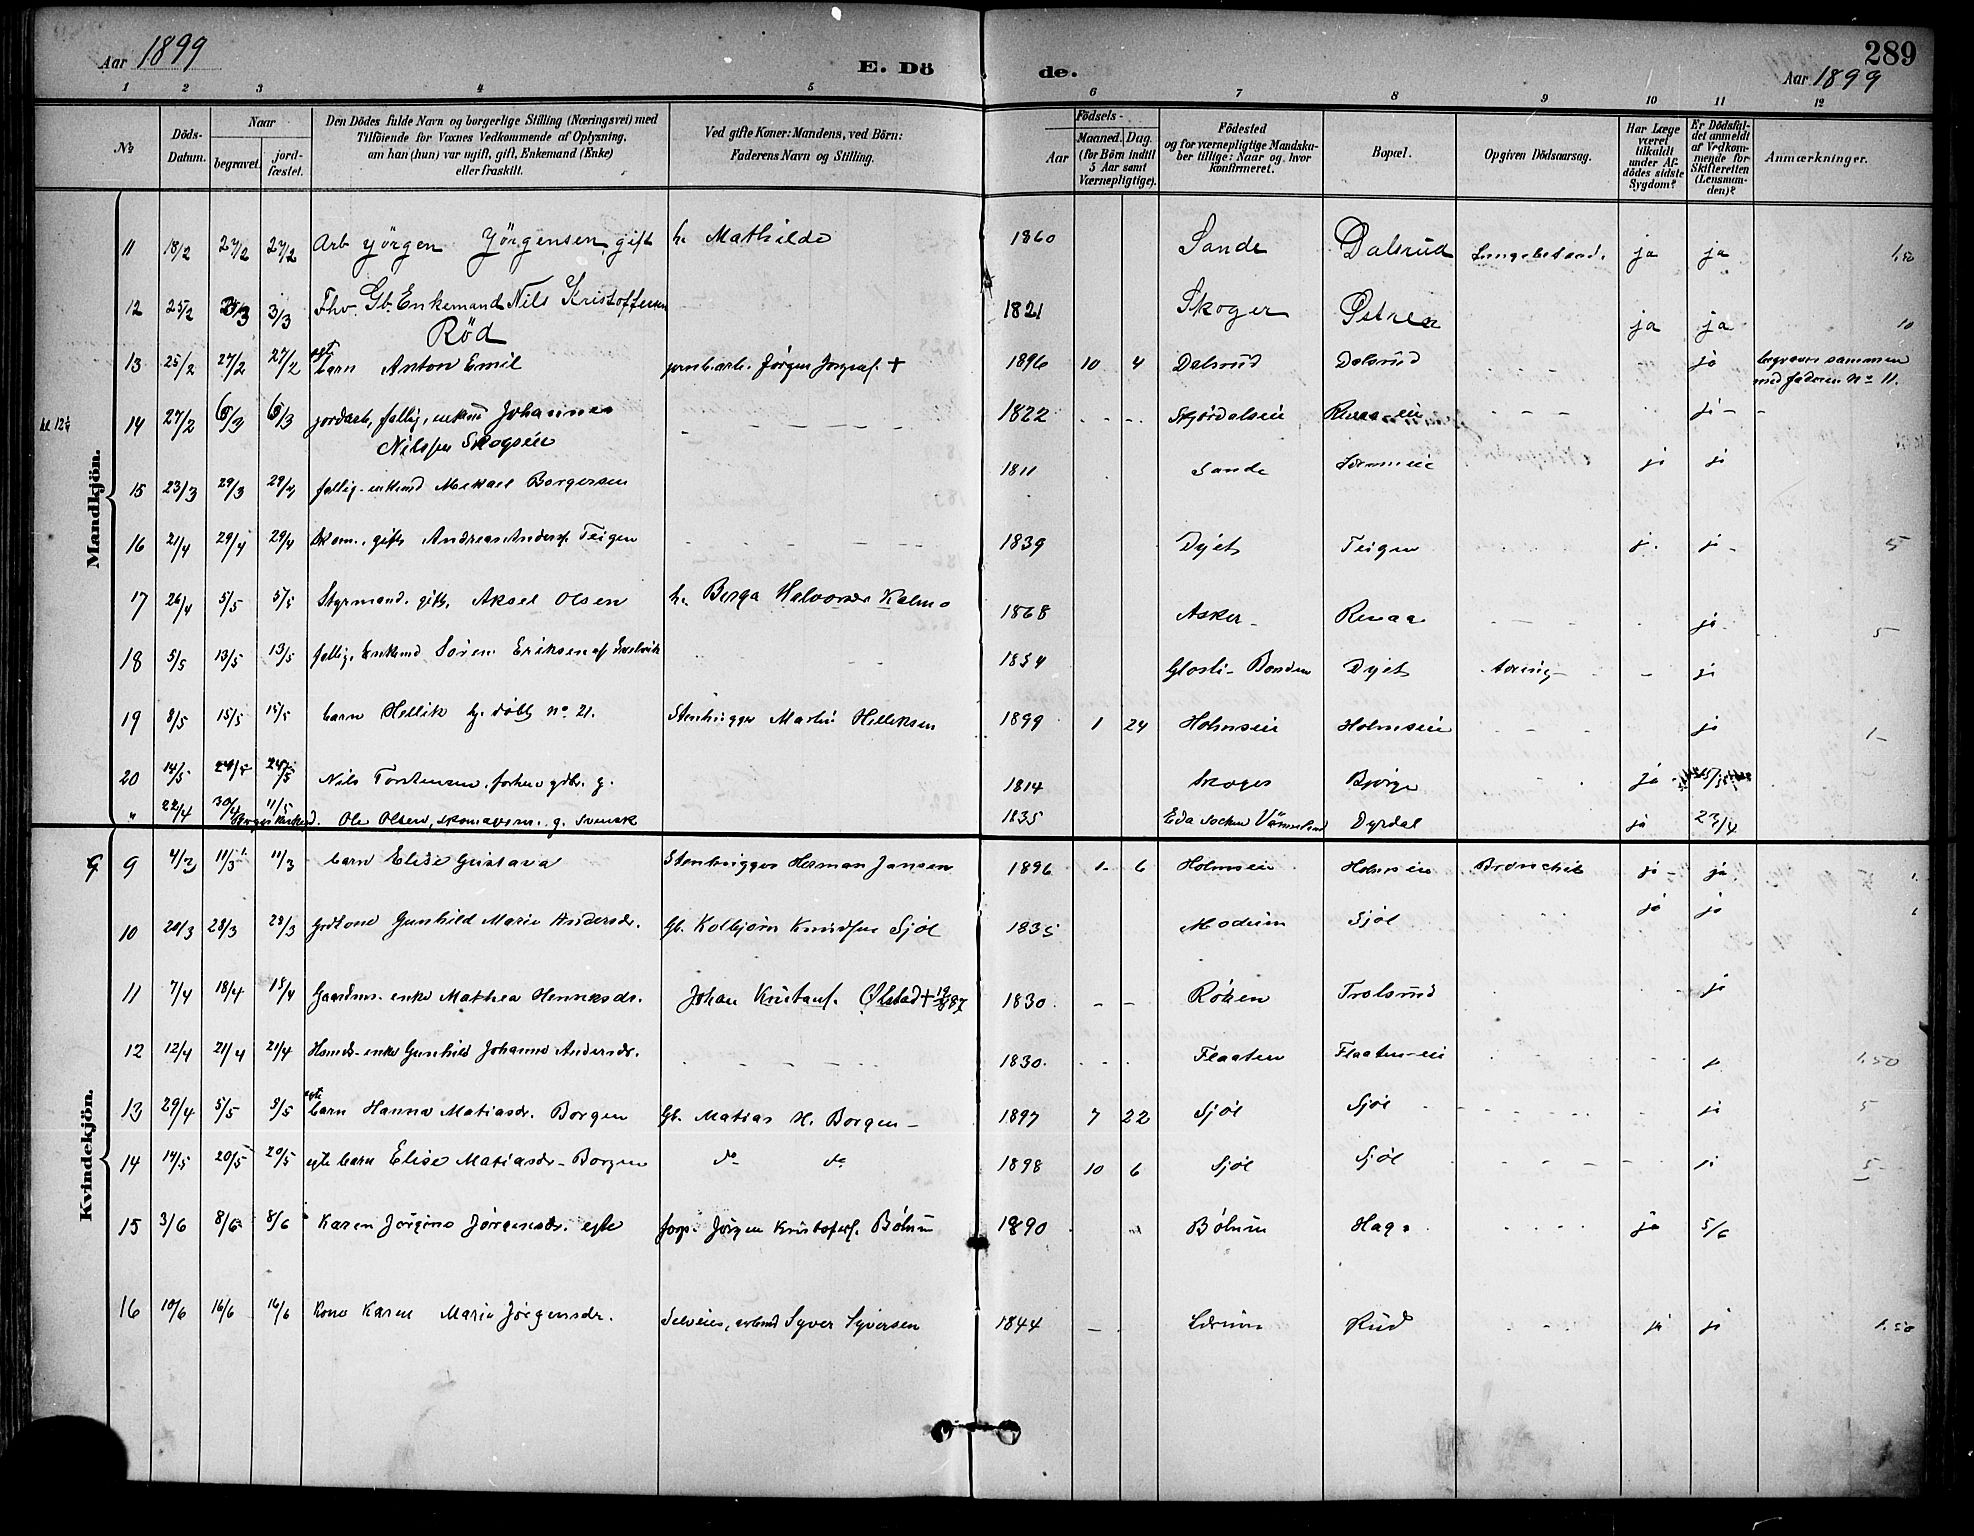 Aar 1899 E. Dö de. 289
Aar 1899
1 2 3 4 5 6 7 8 9 10 11 12
№ Döds-Datum. Naar begravet. jord-fæstet. Den Dödes fulde Navn og borgerlige Stilling (Næringsvei) med
Tilföiende for Voxnes Vedkommende af Oplysning,
om han (hun) var ugift, gift, Enkemand (Enke)
eller fraskilt.
Ved gifte Koner: Mandens, ved Börn:
Faderens Navn og Stilling.
Födsels-
Aar Maaned. Dag.
(for Börn indtil
5 Aar samt
Værnepligtige).
Födested
og for værnepligtige Mandska-
ber tillige: Naar og hvor
konfirmeret.
Bopæl.
Opgiven Dödsaarsag.
Har Læge
været
tilkaldt
under Af-
dödes sidste
Sygdom?
Er Dödsfal-
det anmeldt
af Vedkom-
mende for
Skifteretten
(Lensman-
den)?
Anmærkninger.
Mandkjön.
11 18/2 27/2 27/2 Arb Jörgen Jörgensen, gift h. Mathilde 1860 Sande Dalsrud Lungebetænd. ja ja 1,50
12 25/2 3/3 3/3 Fhv. Gb. Enkemand Nils Kristoffersen 1821 Skoger ja ja 10
Röd
13 25/2 27/2 27/2 egt barn Anton Emil jernb.arb. Jørgen Jørgens. + 1896 10 4 Dalsrud Dalsrud ja begraves sammen
med faderen No 11.
14 27/2 6/3 6/3 jordarb, fattig, enkem Johannes 1822 ja
Nilssen Skogseie
15 23/3 29/3 29/4 fattig. enkemd Mikael Borgersen 1811 Sande ja ja
16 21/4 29/4 29/4 gift Andreas Anders. Teigen 1839 Dyet Teigen j. ja 5
17 26/4 5/5 5/5 Styrmand. gift. Aksel Olsen h. Berga Halvorsdr Kalmo 1868 Asker Revaa ja 5
18 5/5 13/5 13/5 fattig. Enkemd Søren Eriksen af 1854 Dyet ja
19 8/5 15/5 15/5 barn Hellik hj. døbt No 21. Stenhugger Martin Helliksen 1899 1 24 Holmseie Holmseie ja 1
20 14/5 24/5 24/5 Nils Torstensen, forhen gdbr. g. 1814 Skoger ja
" 22/4 30/4 11/5 Ole Olsen, skomagersv. g. Svensk 1835 Eda Socken Värmland Dyrdal ja 23/4
Kvindekjön.
9 4/3 11/3 11/3 barn Elise Gustava Stenhugger Herman Jansen 1896 1 6 Holmseie Holmseie Bronchit ja ja
10 20/3 28/3 28/3 Gdkone Gunhild Marie Andersdr. Gb. Kolbjørn Knudsen Sjøl 1835 Modum Sjøl ja ja
11 7/4 18/4 18/4 Gaardm. enke Mathea Henriksdr. Johan Kristians. Ølstad + 1830 Røken Trolsrud ja
12 12/4 21/4 21/4 Hsmds-enke Gunhild Johanne Andersdr. 1830 Flaaten Flaaten-eie j. 1.50
13 29/4 5/5 5/5 egte barn Hanna Matiasdr. Borgen Gb. Matias H. Borgen 1897 7 22 Sjøl Sjøl ja 5
14 14/5 20/5 20/5 egte barn Elise Matiasdr. Borgen do do 1898 10 6 Sjøl Sjøl ja 5
15 3/6 8/6 8/6 Karen Jørgine Jørgensdr. egte forp. Jørgen Kristofers. Bølum 1890 Bølum Haga ja 5/6
16 10/6 16/6 16/6 kone Karen Marie Jørgensdr. Selveier, arbmd Syver Syversen 1844 Lerum Rud ja ja 1.50